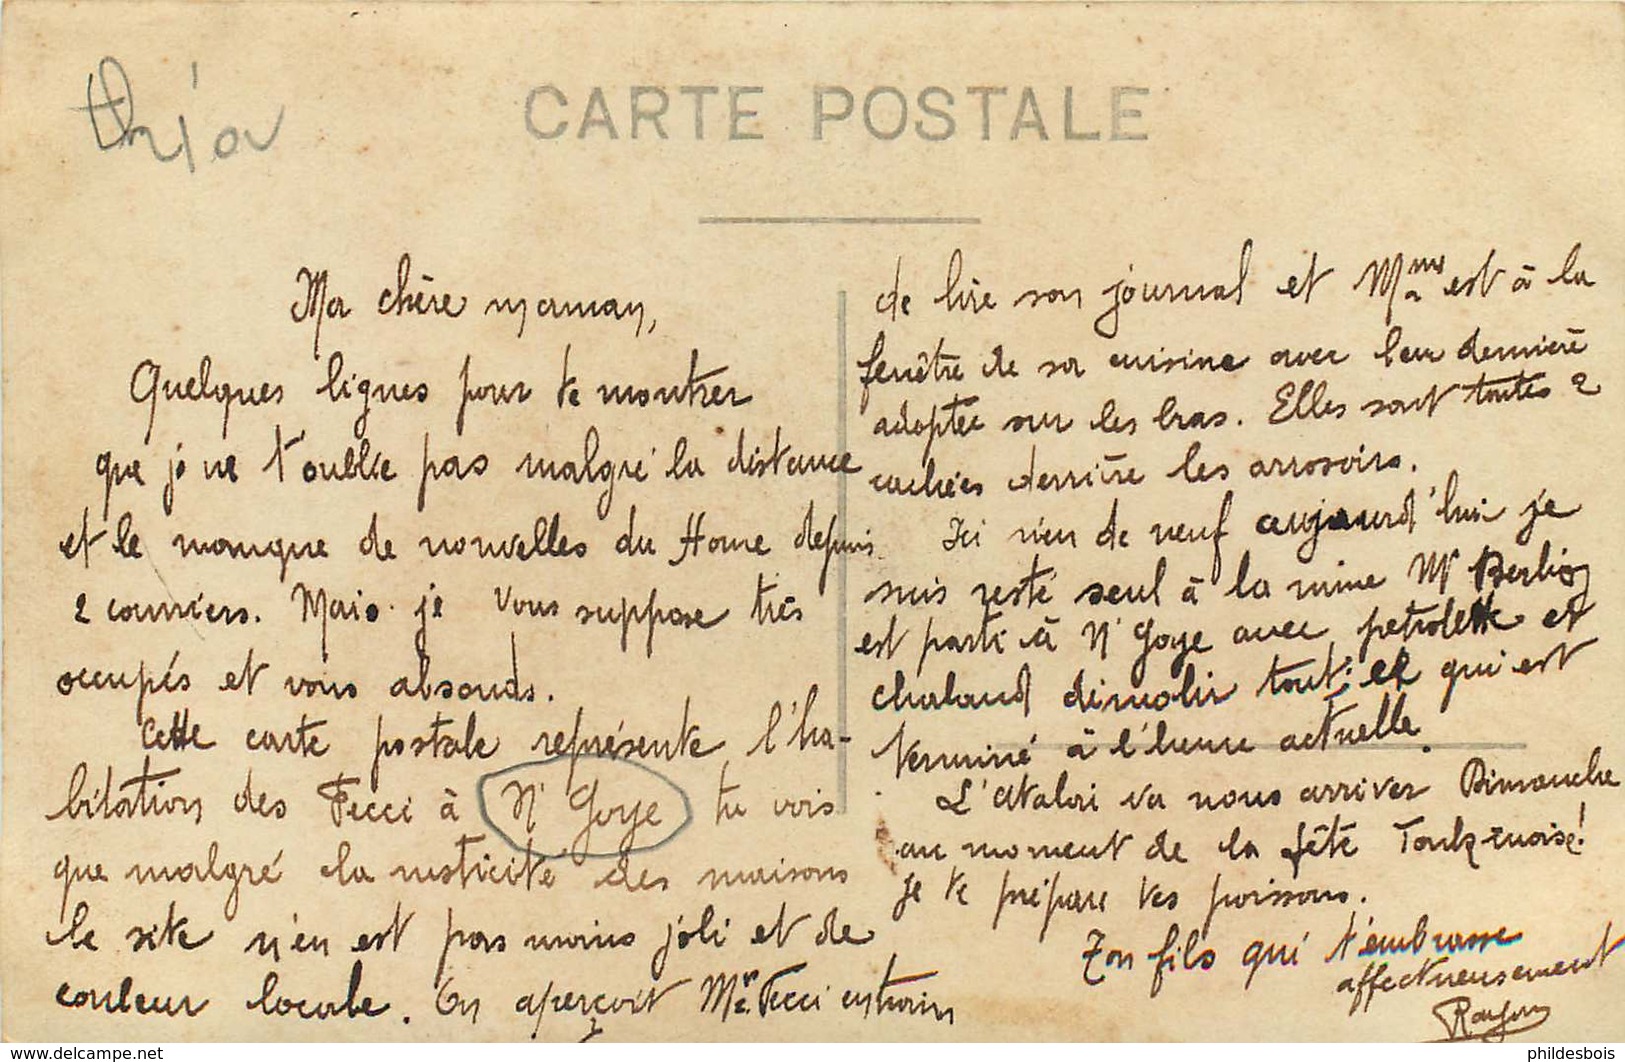 thio
CARTE POSTALE
Ma chère maman,
Quelques lignes pour te montrer
que je ne t'oublie pas malgré la distance
et le manque de nouvelles du Home depuis
2 courriers. Mais je vous suppose très
occupés et vous absouds.
Cette carte postale représente l'ha-
bitation des Pecci à N'Goye tu vois
que malgré la rusticité des maisons
le site n'en est pas moins joli et de
couleur locale. On aperçoit Mr. Pecci en train
de lire son journal et Mme est à la
fenêtre de sa cuisine avec leur dernière
adoptée sur les bras. Elles sont toutes 2
cachées derrière les arrosoirs.
Ici rien de neuf aujourd'hui je
suis resté seul à la mine Mr
est parti à N'Goye avec petrolette et
chaland démolir tout ce qui est
terminé à l'heure actuelle.
L' va nous arriver Dimanche
au moment de la fête
je te prépare tes poissons.
Ton fils qui t'embrasse
affectueusement
www.delcampe.net
phildesbois